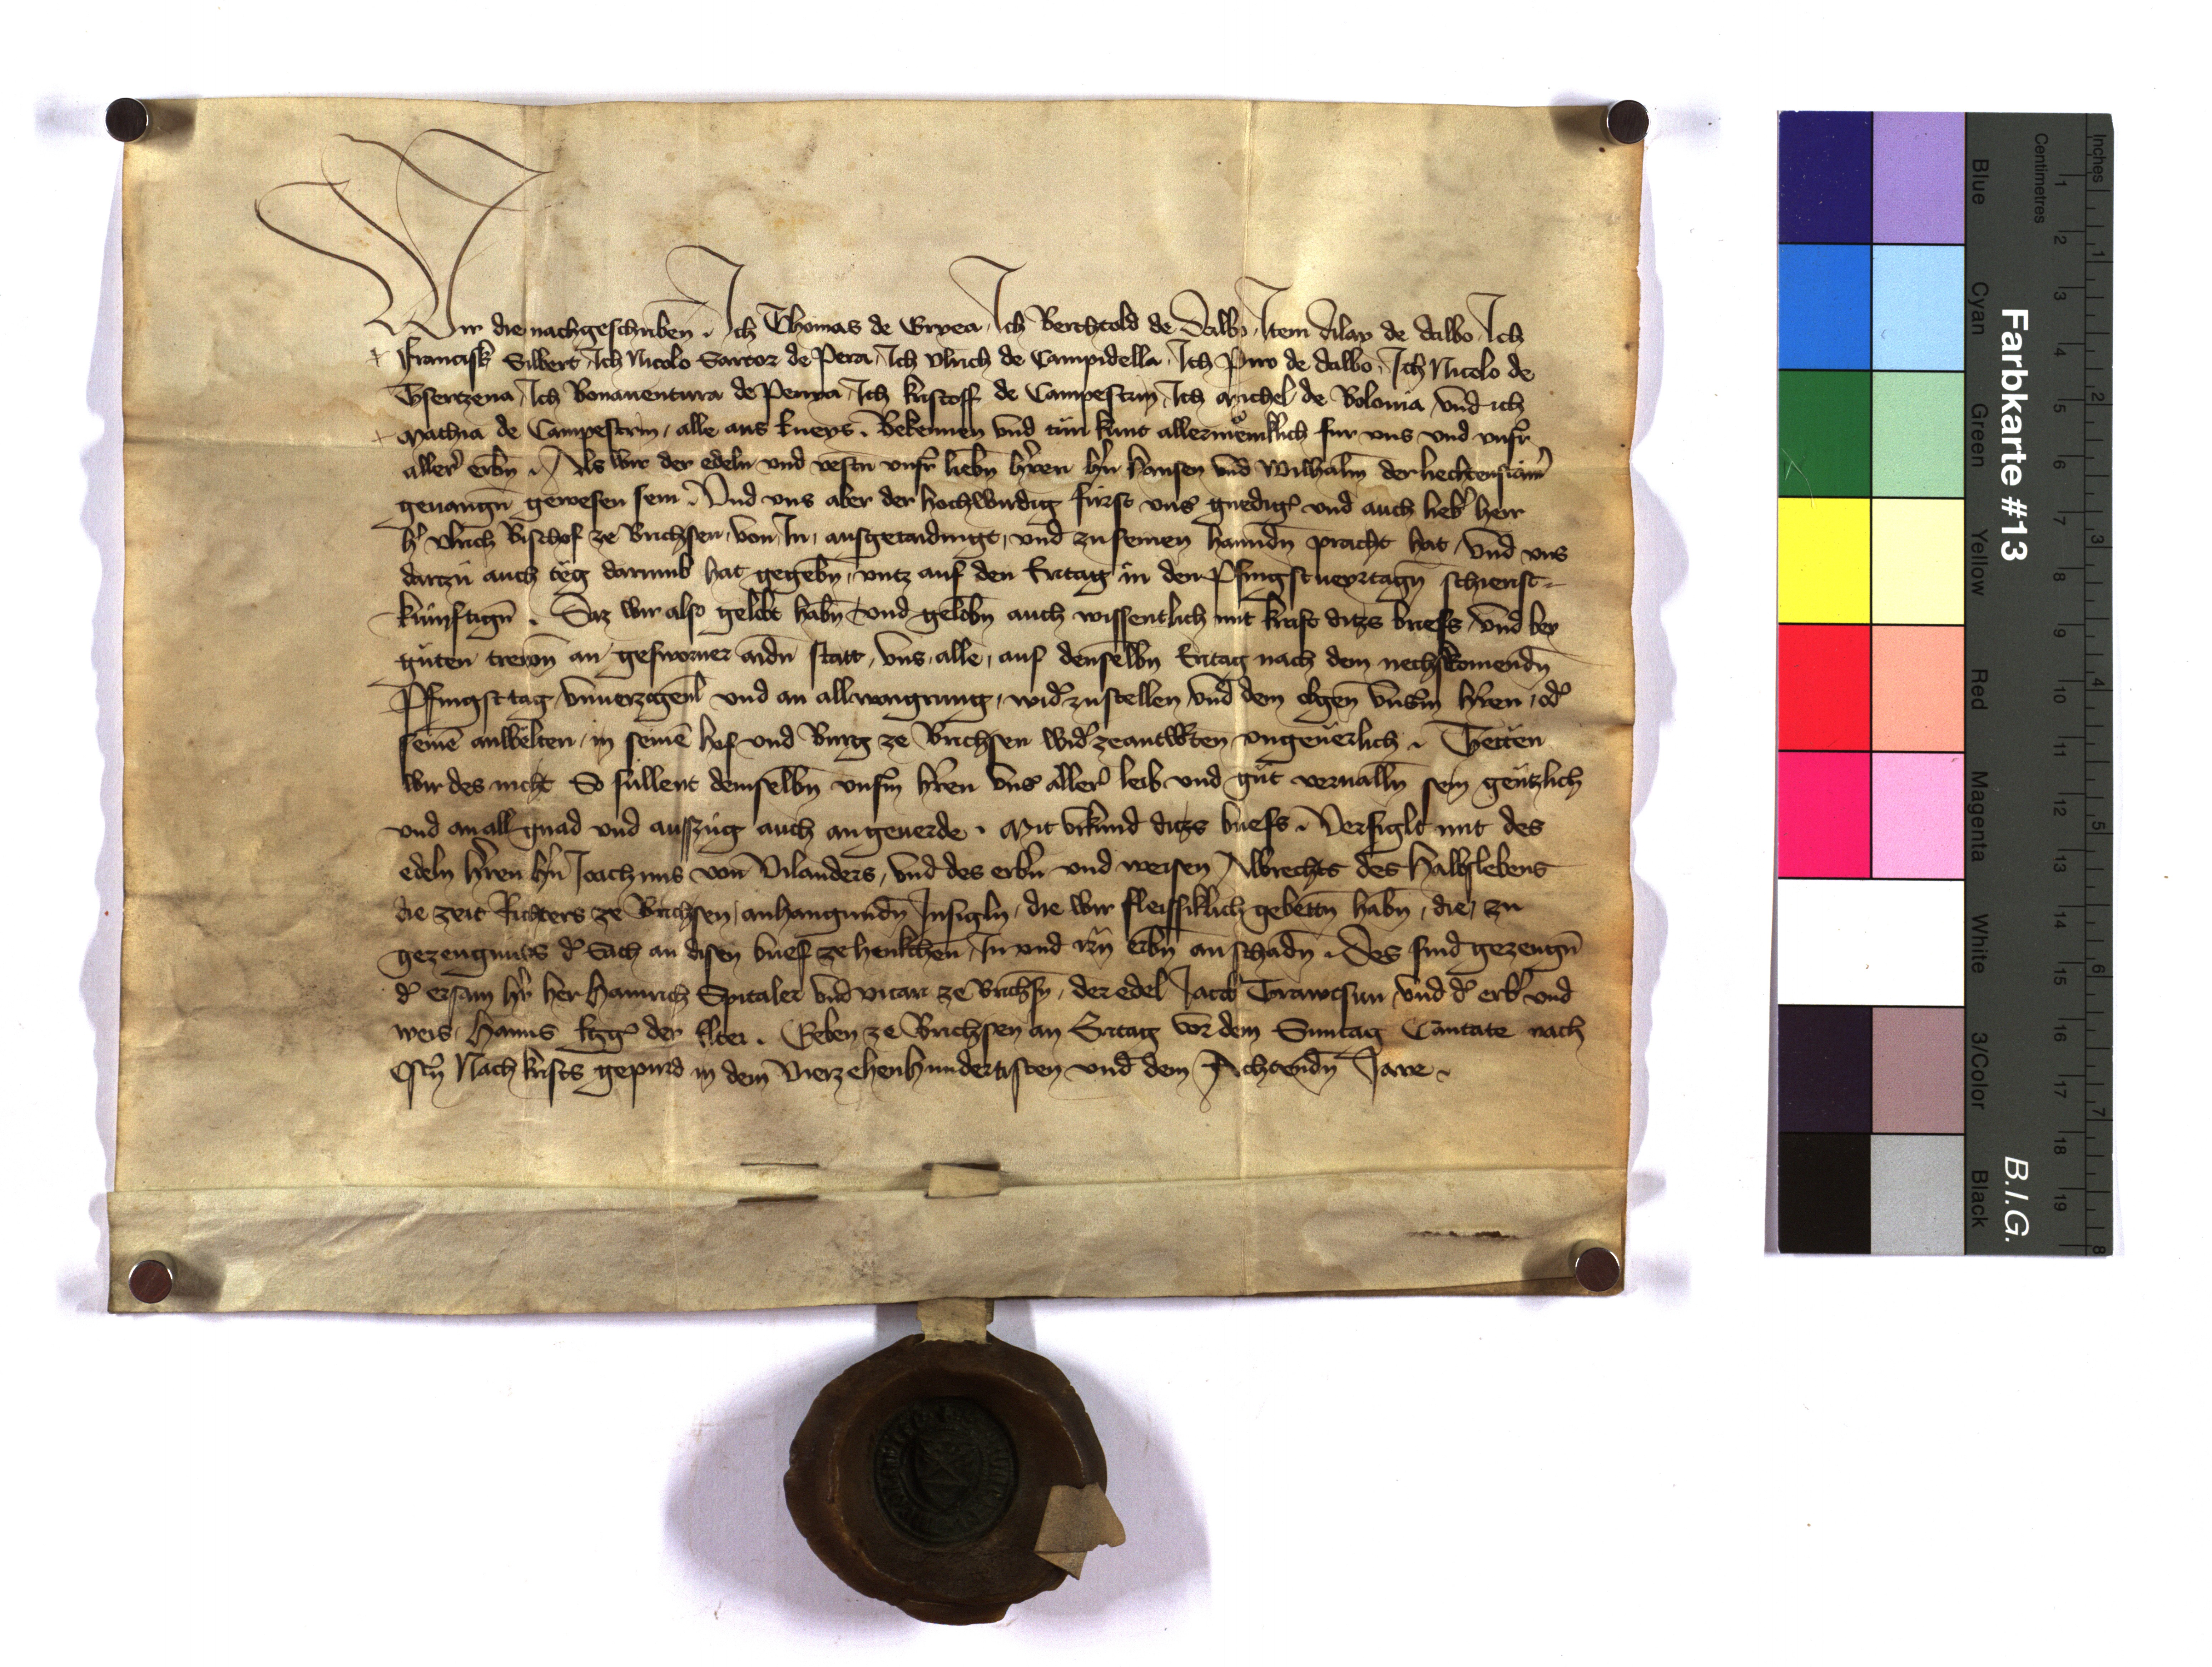 Wir die nachgeschriben . Ich Thomas de Gryea , Ich Berchtold de Dalbo , Item Alay de dalbo , Ich
Francisk Silbert , Ich Nicolo Sartor de Pera , Ich Vlrich de Campidella , Ich Piro de dalbo , Ich Nicolo de
Ich Bonauentura de Penna , Ich kristoff de Campestrin , Ich Michel de Bolonia , vnd ich
Mathia de Campestrin , alle aus Eueys . Bekennen vnd tůn kunt allermenklich fur vns vnd vnsr̄
allerʼ erbn̄ . Als wir der edeln vnd vestn̄ vnsr̄ liebn̄ hr̄ren hn̄ hansen vnd Wilhalm̄ der liechtenstain̄
geuangn̄ gewesen sein . Vnd vns aber der hochwirdig fürst vnsʼ gnedigʼ vnd auch liebʼ herr
hʼ Vlrich Bischof ze Brichsen , von In , ausgetaidingt , vnd zu seinen hanndn̄ pracht hat , vnd vns
dartzů auch tëg darumb hat gegebn̄ , vntz auf den Eritag in den Pfingstueyrtagn̄ schierist-
künftign̄ . Daz wir also gelobt habn̄ vnd gelobn̄ auch wissentlich mit kraft ditzs briefs , vnd bey
gůten trewn̄ an gesworner aidn̄ statt , vns alle , auf denselbn̄ Eritag nach dem nechstkomendn̄
Pfingsttag , vnuerzogenl̄ vnd an all wagrung , widʼ zustellen , vnd dem obgen̄ vnserm̄ hr̄ren , odʼ
seinē anwëlten , in seinē hof vnd Burg ze Brichsen widʼ zeantwůrten vngeuerlich . Tetten
wir des nicht So süllent demselbn̄ vnsm̄ hr̄ren vnsʼ allerʼ leib vnd gůt verualln̄ sein gentzlich
vnd an all gnad vnd auszůg auch an geuerde . Mit vrkund ditzs briefs . Versiglt mit des
edeln hr̄ren hn̄ Joachims von Vilanders , vnd des erbn̄ vnd weisen Albrechts des Halbslebens
die zeit Richters ze Brichsen , anhangundn̄ Insigln , die wir fleissiklich gebettn̄ habn̄ , die , zu
gezeugnuss dʼ Sach an disen brief ze henkchen , In vnd irn̄ erbn̄ an schadn̄ . Des sind gezeugn̄
dʼ ersam hʼr her Hainrich Spitaler vnd vicari ze Brichsn̄ , der edel Jacob Trawtsun vnd dʼ erbʼ vnd
weis , Hanns der elter . Geben ze Brichsen an Eritag vor dem Suntag Cantate nach
Ostn̄ Nach krists gepurd in dem Vierzehenhundertisten vnd dem Achtendn̄ Jare .
Farbkarte #13
B.I.G.
Inches
Centimetres
1 2 3 4 5 6 7 8
1 2 3 4 5 6 7 8 9 10 11 12 13 14 15 16 17 18 19
Blue
Cyan
Green
Yellow
Red
Magenta
White
3/Color
Black